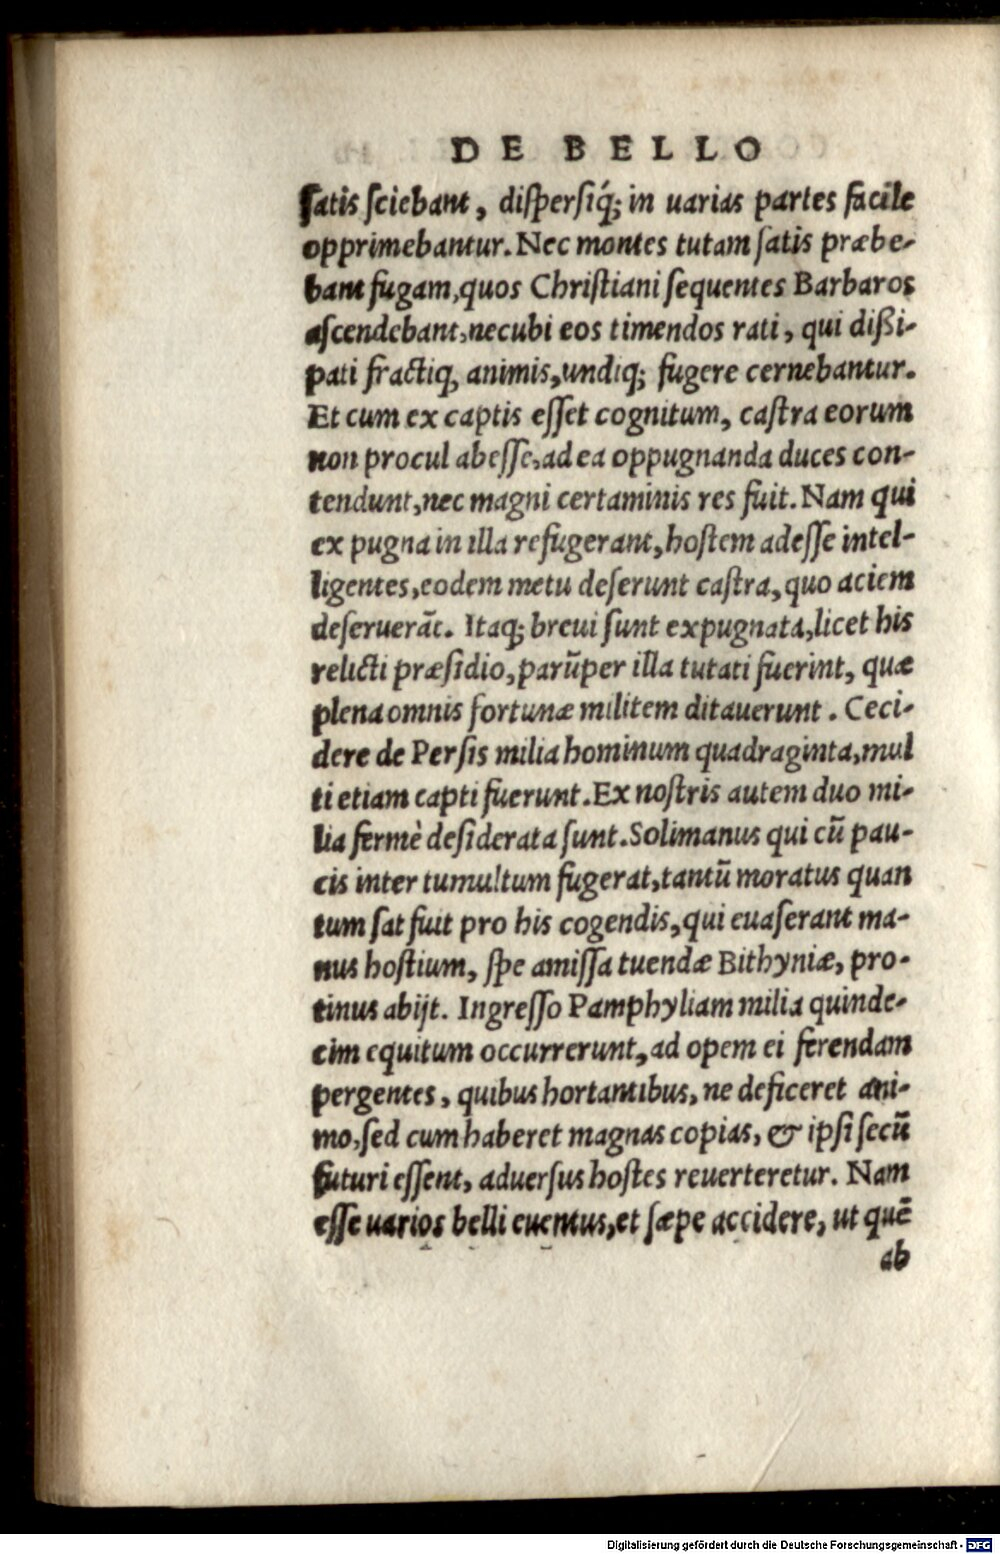 DE BELLO
satis sciebant, dispersiq́; in uarias partes facile
opprimebantur. Nec montes tutam satis præbe-
bant fugam, quos Christiani sequentes Barbaros
ascendebant, necubi eos timendos rati, qui dißi-
pati fractiq, animis, undiq; fugere cernebantur.
Et cum ex captis esset cognitum, castra eorum
non procul abesse, ad ea oppugnanda duces con-
tendunt, nec magni certaminis res fuit. Nam qui
ex pugna in illa refugerant, hostem adesse intel-
ligentes, eodem metu deserunt castra, quo aciem
deseruerãt. Itaq; breui sunt expugnata, licet his
relicti præsidio, parũper illa tutati fuerint, quæ
plena omnis fortunæ militem ditauerunt. Ceci-
dere de Persis milia hominum quadraginta, mul
ti etiam capti fuerunt. Ex nostris autem duo mi-
lia fermè desiderata sunt. Solimanus qui cũ pau-
cis inter tumultum fugerat, tantũ moratus quan
tum sat fuit pro his cogendis, qui euaserant ma-
nus hostium, spe amissa tuendæ Bithyniæ, pro-
tinus abijt. Ingresso Pamphyliam milia quinde-
cim equitum occurrerunt, ad opem ei ferendam
pergentes, quibus hortantibus, ne deficeret ani-
mo, sed cum haberet magnas copias, & ipsi secũ
futuri essent, aduersus hostes reuerteretur. Nam
esse uarios belli euentus, et sæpe accidere, ut quẽ
ab
Digitalisierung gefördert durch die Deutsche Forschungsgemeinschaft - DFG